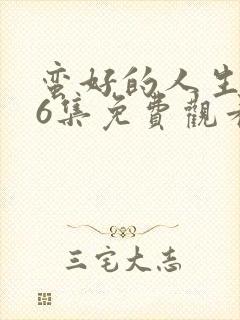 蛮好的人生
6集免費觀看
三宅大志